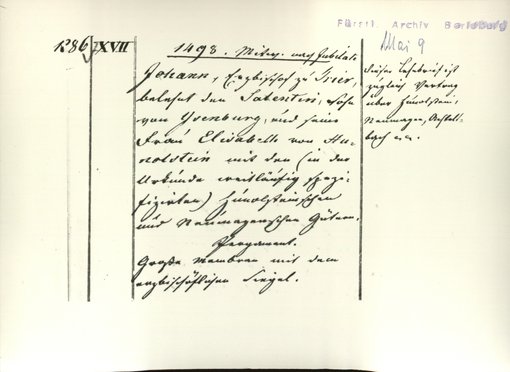 Fürstl. Archiv Berleburg
1286 XVII
1498. Mitw. nach Jubilate
Mai 9
Johann, Erzbischof zu Trier,
belehnt den Salentin, Sohn
von Ysenburg, und seine
Frau Elisabeth von Hu-
nolstein mit den (in der
Urkunde weitläufig spezi-
fizirten) Hunolsteinschen
und Neumagenschen Gütern.
Pergament.
Große Membran mit dem
erzbischöflichen Siegel.
Dieser Lehnbrief ist
zugleich Vertrag
über Hunolstein,
Neumagen,
bach